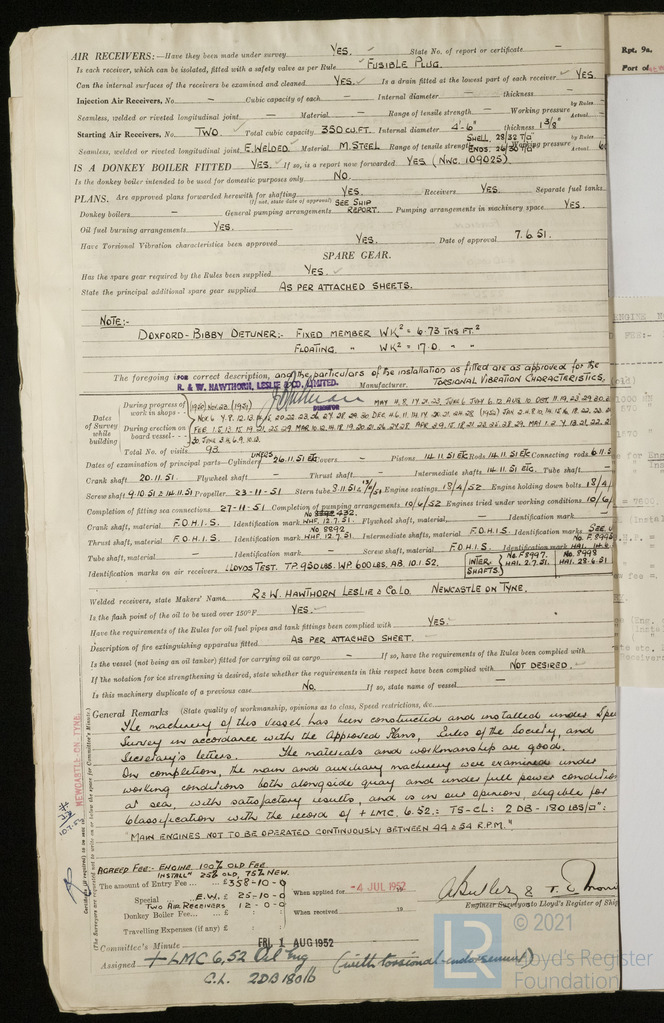 AIR RECEIVERS:—Have they been made under survey YES. State No. of report or certificate —
Is each receiver, which can be isolated, fitted with a safety valve as per Rule FUSIBLE PLUG.
Can the internal surfaces of the receivers be examined and cleaned YES. Is a drain fitted at the lowest part of each receiver YES
Injection Air Receivers, No. — Cubic capacity of each — Internal diameter — thickness —
Seamless, welded or riveted longitudinal joint — Material — Range of tensile strength — Working pressure by Rules Actual
Starting Air Receivers, No. TWO. Total cubic capacity 350 CU.FT. Internal diameter 4'-6" thickness 1 3/8"
Seamless, welded or riveted longitudinal joint E.WELDED. Material M.STEEL Range of tensile strength SHELL 28/32 T/□" ENDS. 26/30 T/□" Working pressure by Rules Actual
IS A DONKEY BOILER FITTED YES. If so, is a report now forwarded YES (NWC. 109025)
Is the donkey boiler intended to be used for domestic purposes only NO.
PLANS. Are approved plans forwarded herewith for shafting YES. Receivers YES. Separate fuel tanks
(If not, state date of approval)
Donkey boilers — General pumping arrangements SEE SHIP REPORT. Pumping arrangements in machinery space YES.
Oil fuel burning arrangements YES.
Have Torsional Vibration characteristics been approved YES. Date of approval 7.6.51.
SPARE GEAR.
Has the spare gear required by the Rules been supplied YES.
State the principal additional spare gear supplied AS PER ATTACHED SHEETS.
NOTE:-
DOXFORD-BIBBY DETUNER:- FIXED MEMBER WK² = 6.73 TNS FT.²
FLOATING. " WK² = 17.0. " "
The foregoing is a correct description, and the particulars of the installation as fitted are as approved for the TORSIONAL VIBRATION CHARACTERISTICS.
FOR R. & W. HAWTHORN, LESLIE & CO. LIMITED. Manufacturer.
DIRECTOR
Dates of Survey while building
During progress of work in shops - -
During erection on board vessel - - -
Total No. of visits 93.
Dates of examination of principal parts—Cylinders 26.11.51 ETC Covers — Pistons 14.11.51 ETC Rods 14.11.51 ETC. Connecting rods 6.11.5
Crank shaft 20.11.51 Flywheel shaft — Thrust shaft — Intermediate shafts 14.11.51 ETC. Tube shaft —
Screw shaft 9.10.51 & 14.11.51 Propeller 23-11-51 Stern tube Engine seatings 18/4/52 Engine holding down bolts 18/4/
Completion of fitting sea connections 27-11-51 Completion of pumping arrangements 10/6/52 Engines tried under working conditions 10/6/
Crank shaft, material F.O.H.I.S. Identification mark NHF. 12.7.51. Flywheel shaft, material — Identification mark —
Thrust shaft, material F.O.H.I.S. Identification mark No 8892. NHF. 12.7.51 Intermediate shafts, material F.O.H.I.S. Identification marks SEE
Tube shaft, material — Identification mark — Screw shaft, material F.O.H.I.S. Identification mark No. F.8995 HAI. 14.8.
Identification marks on air receivers LLOYDS TEST. TP. 950 LBS. WP 600 LBS. AB. 10.1.52. INTER. SHAFTS. No. F8997. HAI. 2.7.51. No. 8998 HAI. 28.6.51
Welded receivers, state Makers' Name R & W. HAWTHORN LESLIE & CO. LD. NEWCASTLE ON TYNE.
Is the flash point of the oil to be used over 150°F YES.
Have the requirements of the Rules for oil fuel pipes and tank fittings been complied with YES.
Description of fire extinguishing apparatus fitted AS PER ATTACHED SHEET.
Is the vessel (not being an oil tanker) fitted for carrying oil as cargo — If so, have the requirements of the Rules been complied with —
If the notation for ice strengthening is desired, state whether the requirements in this respect have been complied with NOT DESIRED.
Is this machinery duplicate of a previous case No. If so, state name of vessel —
General Remarks (State quality of workmanship, opinions as to class, Speed restrictions, &c.
The machinery of this vessel has been constructed and installed under Spe
Survey in accordance with the Approved Plans, Rules of the Society, and
Secretary's letters. The materials and workmanship are good.
On completion, the main and auxiliary machinery were examined under
working conditions both alongside quay and under full power condition
at sea, with satisfactory results, and is in our opinion, eligible for
classification with the record of + LMC. 6.52.: TS-CL: 2 DB - 180 LBS/□":
"MAIN ENGINES NOT TO BE OPERATED CONTINUOUSLY BETWEEN 44 & 54 R.P.M."
AGREED FEE:- ENGINE 100% OLD FEE
INSTALLN 25% OLD, 75% NEW.
The amount of Entry Fee ... £358-10-0
Special ... E.W. £ 25-10-0
TWO AIR RECEIVERS 12-0-0
Donkey Boiler Fee... £
Travelling Expenses (if any) £
When applied for -4 JUL 1952
When received 19
Engineer Surveyors to Lloyd's Register of Ship
Committee's Minute FRI. 1 AUG 1952
Assigned + LMC 6,52 Oil Eng (with torsional endorsement)
C.L. 2DB 180 lb
NEWCASTLE-ON-TYNE
(The Surveyors are requested not to write on or below the space for Committee's Minute.)
Rpt. 9a.
Port of
© 2021
Lloyd's Register
Foundation